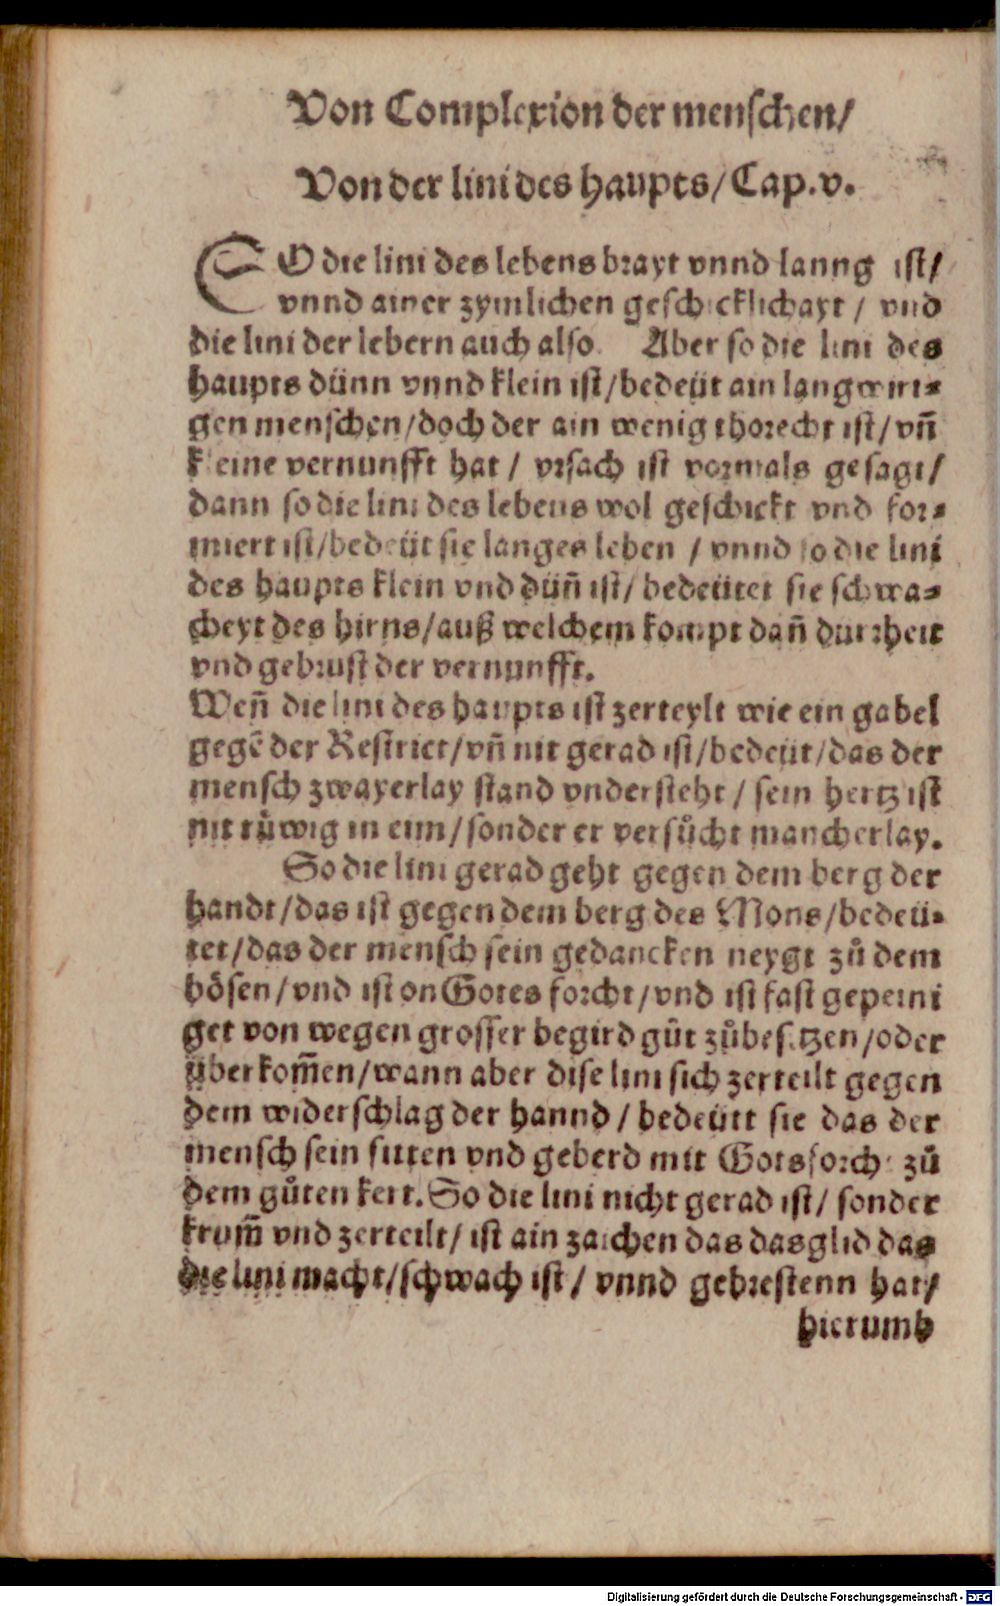 Von Complexion der menschen/
Von der lini des haupts/ Cap.v.
SO die lini des lebens brayt vnnd lanng ist/
vnnd ainer zymlichen geschicklichayt / vnd
die lini der lebern auch also. Aber so die lini des
haupts dünn vnnd klein ist/bedeüt ain langwiri-
gen menschen/doch der ain wenig thorecht ist/vñ
kleine vernunfft hat / vrsach ist vormals gesagt/
dann so die lini des lebens wol geschickt vnd for-
miert ist/bedeüt sie langes leben / vnnd so die lini
des haupts klein vnd düñ ist/ bedeütet sie schwa-
cheyt des hirns/auß welchem kompt dañ durrheit
vnd gebrust der vernunfft.
Weñ die lini des haupts ist zerteylt wie ein gabel
gegẽ der Restrict/vñ nit gerad ist/bedeüt/das der
mensch zwayerlay stand vndersteht / sein hertz ist
nit růwig in eim/sonder er versůcht mancherlay.
So die lini gerad geht gegen dem berg der
handt/das ist gegen dem berg des Mons/bedeü-
tet/das der mensch sein gedancken neygt zů dem
bösen/vnd ist on Gotes forcht/vnd ist fast gepeini
get von wegen grosser begird gůt zůbesitzen/oder
überkom̃en/wann aber dise lini sich zerteilt gegen
dem widerschlag der hannd / bedeütt sie das der
mensch sein sitten vnd geberd mit Gotsforcht zů
dem gůten kert. So die lini nicht gerad ist/ sonder
krum̃ vnd zerteilt/ ist ain zaichen das das glid das
die lini macht/schwach ist / vnnd gebrestenn hat/
hierumb
Digitalisierung gefördert durch die Deutsche Forschungsgemeinschaft - DFG